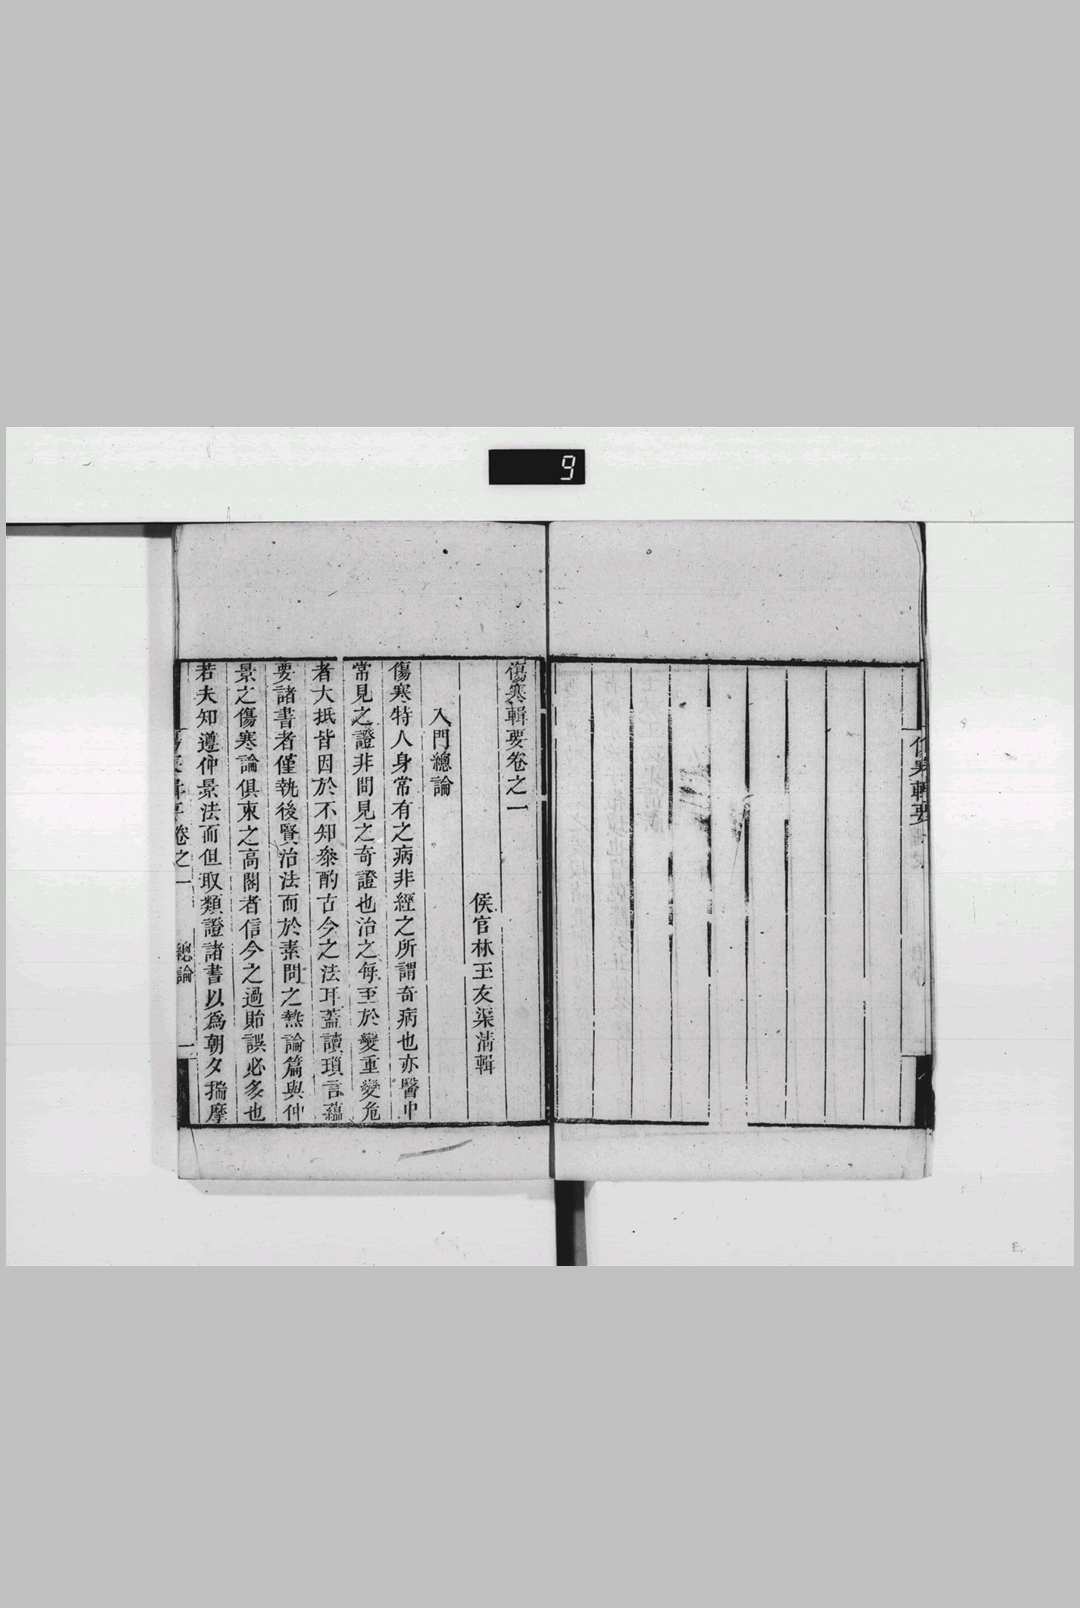 9
傷寒輯要
傷寒輯要卷之一
侯官林玉友渠清輯
入門總論
傷寒特人身常有之病非經之所謂奇病也亦醫中
常見之證非間見之奇證也治之每至於變重變危
者大抵皆因於不知叅酌古今之法耳蓋讀瑣言蘊
要諸書者僅執後賢治法而於素問之熱論篇與仲
景之傷寒論俱束之高閣者信今之過貽誤必多也
若夫知遵仲景法而但取類證諸書以為朝夕揣摩
傷寒輯要卷之一 總論 一